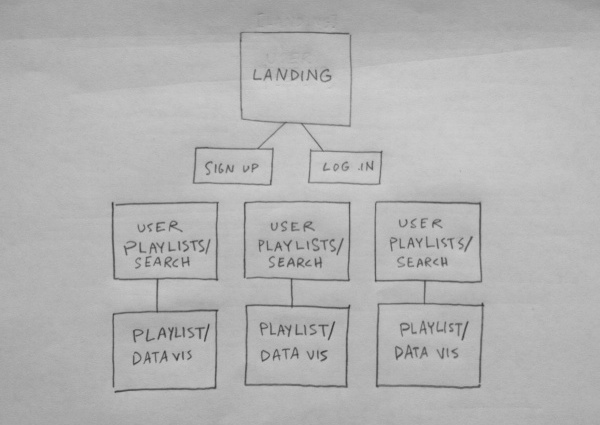 LANDING
SIGN UP
LOG IN
USER
PLAYLISTS/
SEARCH
USER
PLAYLISTS/
SEARCH
USER
PLAYLISTS/
SEARCH
PLAYLIST/
DATA VIS
PLAYLIST/
DATA VIS
PLAYLIST/
DATA VIS